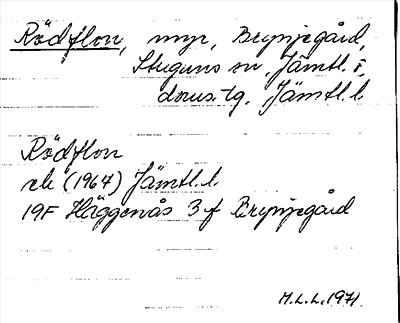 Rödflon, myr, Brynjegård,
Stuguns sn, Jämtl. ö,
doms.tg. Jämtl. l.
Rödflon
ek (1967) Jämtl. l.
19F Häggenås 3 f Brynjegård
M.L.L. 1971